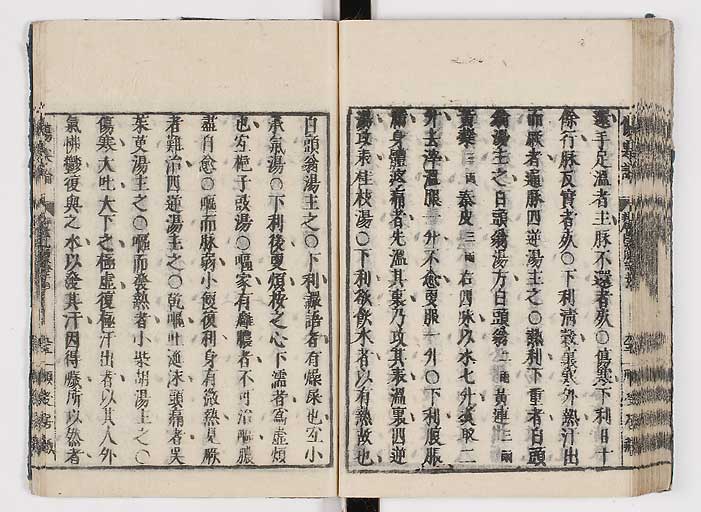 還手足溫者生脉不還者死○傷寒下利日十
餘行脉反實者死○下利淸穀裏寒外熱汗出
而厥者通脉四逆湯主之○熱利下重者白頭
翁湯主之白頭翁湯方白頭翁二兩黃連三兩
黃蘗三兩秦皮三兩右四味以水七升煑取二
升去滓溫服一升不愈更服一升○下利腹脹
滿身體疼痛者先溫其裏乃攻其表溫裏四逆
湯攻表桂枝湯○下利欲飮水者以有熱故也
白頭翁湯主之○下利譫語者有燥屎也宜小
承氣湯○下利後更煩按之心下濡者爲虛煩
也宜梔子豉湯○嘔家有癰膿者不可治嘔膿
盡自愈○嘔而脉弱小便復利身有微熱見厥
者難治四逆湯主之○乾嘔吐涎沫頭痛者吳
茱萸湯主之○嘔而發熱者小柴胡湯主之○
傷寒大吐大下之極虛復極汗出者以其人外
氣怫鬱復與之水以發其汗因得噦所以然者
傷寒論